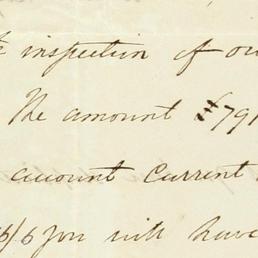 inspection of ou
The amount £791
account current
6/6 you will have